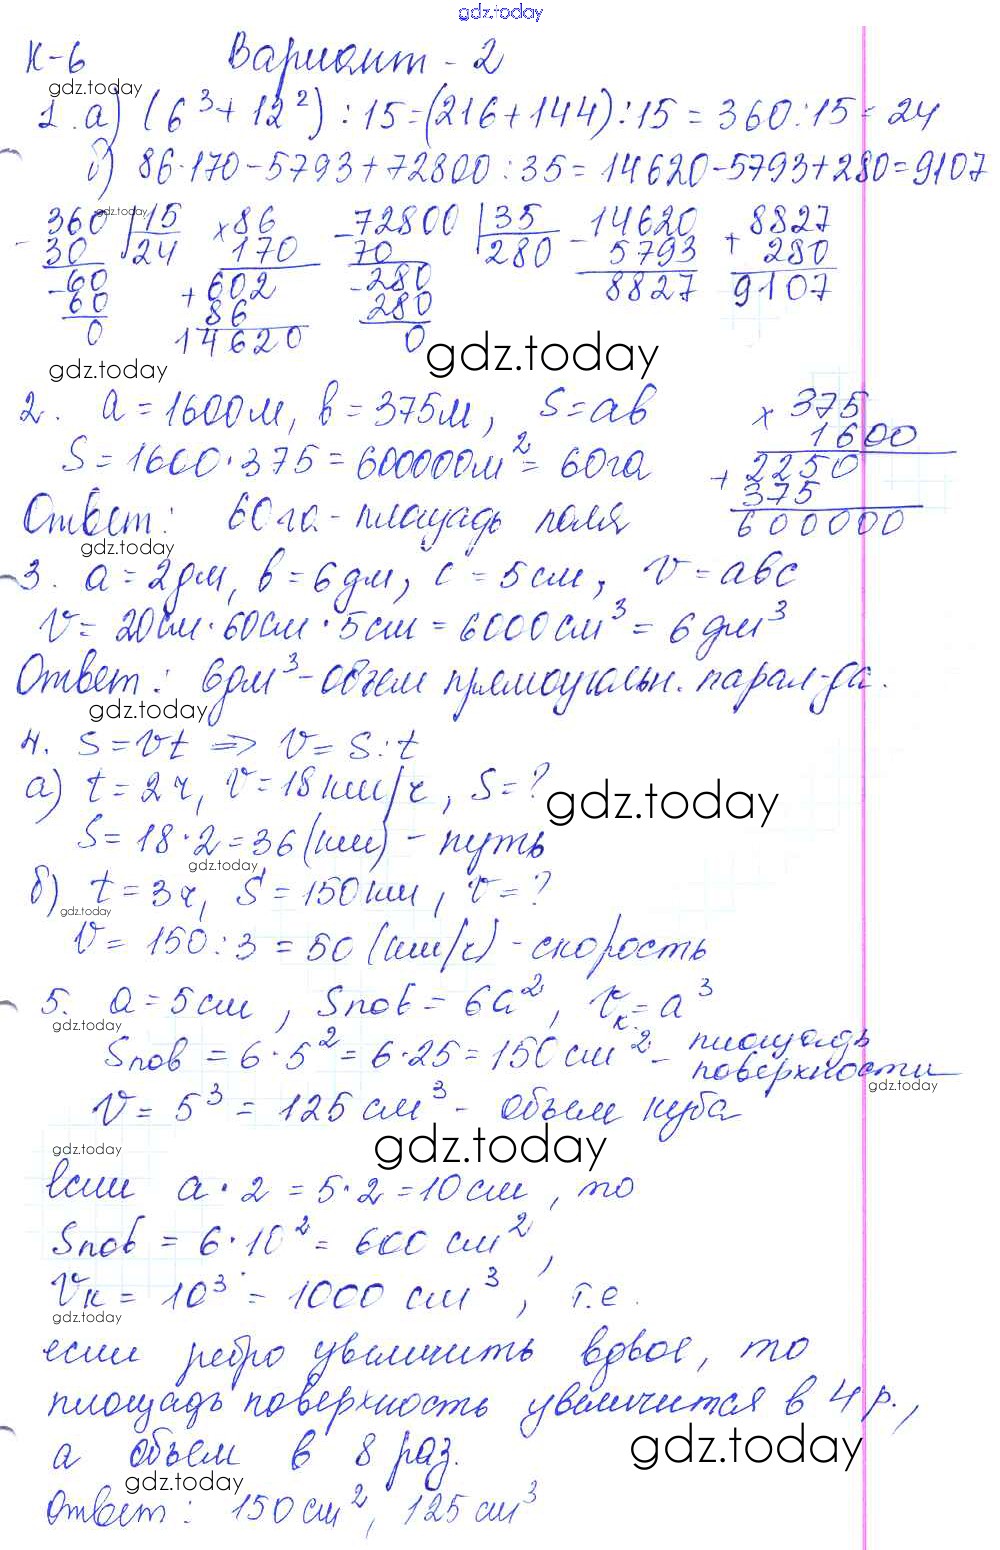 gdz.today
К-6 Вариант - 2
gdz.today
1. а) (6³ + 12²) : 15 = (216 + 144) : 15 = 360 : 15 = 24
б) 86 · 170 - 5793 + 72800 : 35 = 14620 - 5793 + 280 = 9107
gdz.today
360 | 15 × 86 72800 | 35 14620 8827
- 30 24 170 - 70 280 - 5793 + 280
- 60 + 602 - 280 8827 9107
60 86 280
0 14620 0
gdz.today
gdz.today
2. а = 1600м, в = 375м, S = ав × 375
S = 1600 · 375 = 600000м² = 60га 1600
+ 2250
Ответ: 60га - площадь поля 375
600000
gdz.today
3. а = 2дм, в = 6дм, с = 5см, V = авс
V = 20см · 60см · 5см = 6000см³ = 6дм³
Ответ: 6дм³ - объем прямоугольн. парал-да.
gdz.today
4. S = Vt => V = S : t
а) t = 2ч, V = 18км/ч, S = ?
gdz.today
S = 18 · 2 = 36 (км) - путь
gdz.today
б) t = 3ч, S = 150км, V = ?
gdz.today
V = 150 : 3 = 50 (км/ч) - скорость
5. а = 5см, Sпов = 6а², Vк = а³
gdz.today
Sпов = 6 · 5² = 6 · 25 = 150см² - площадь
поверхности
gdz.today
V = 5³ = 125см³ - объем куба
gdz.today
gdz.today
если а · 2 = 5 · 2 = 10см, то
Sпов = 6 · 10² = 600 см²,
Vк = 10³ = 1000 см³, т.е.
gdz.today
если ребро увеличить вдвое, то
площадь поверхность увеличится в 4 р.,
а объем в 8 раз.
gdz.today
gdz.today
Ответ: 150см², 125см³